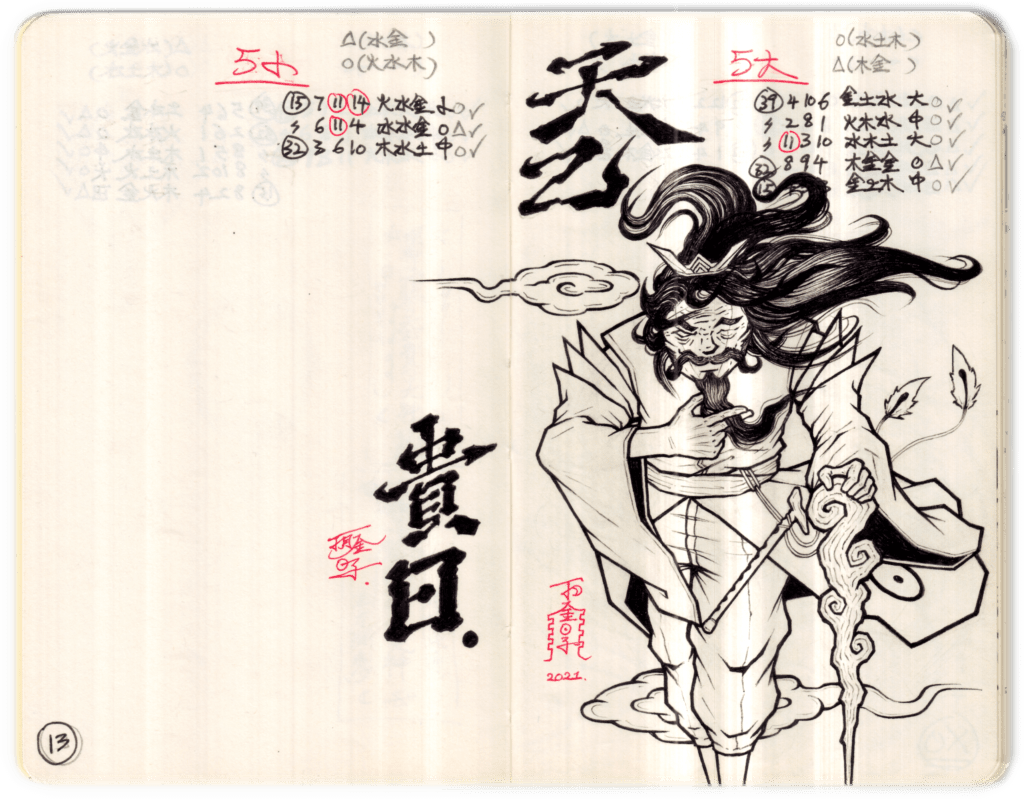 5小
△(水金 )
○(火水木)
⑮ 7 ⑪ ⑭ 火水金 小○✓
〃 6 ⑪ 4 水水金 ○△✓
㉜ 3 6 10 木水土 中○✓
貴
日.
13
天
乙
5大
○(水土木)
△(木金 )
㊴ 4 10 6 金土水 大○✓
〃 2 8 1 火木水 中○✓
〃 ⑪ 3 10 水木土 大○✓
㉜ 8 9 4 木金金 ○△✓
⑮ 金土木 中○✓
2021.